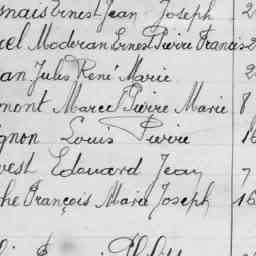 snais Ernest Jean Joseph 2
cel Moderan Ernest Pierre Francis 2
an Jules René Marie 2
mont Marcel Pierre Marie 8
gnon Louis Pierre 16
vest Edouard Jean 7
che François Marie Joseph 16